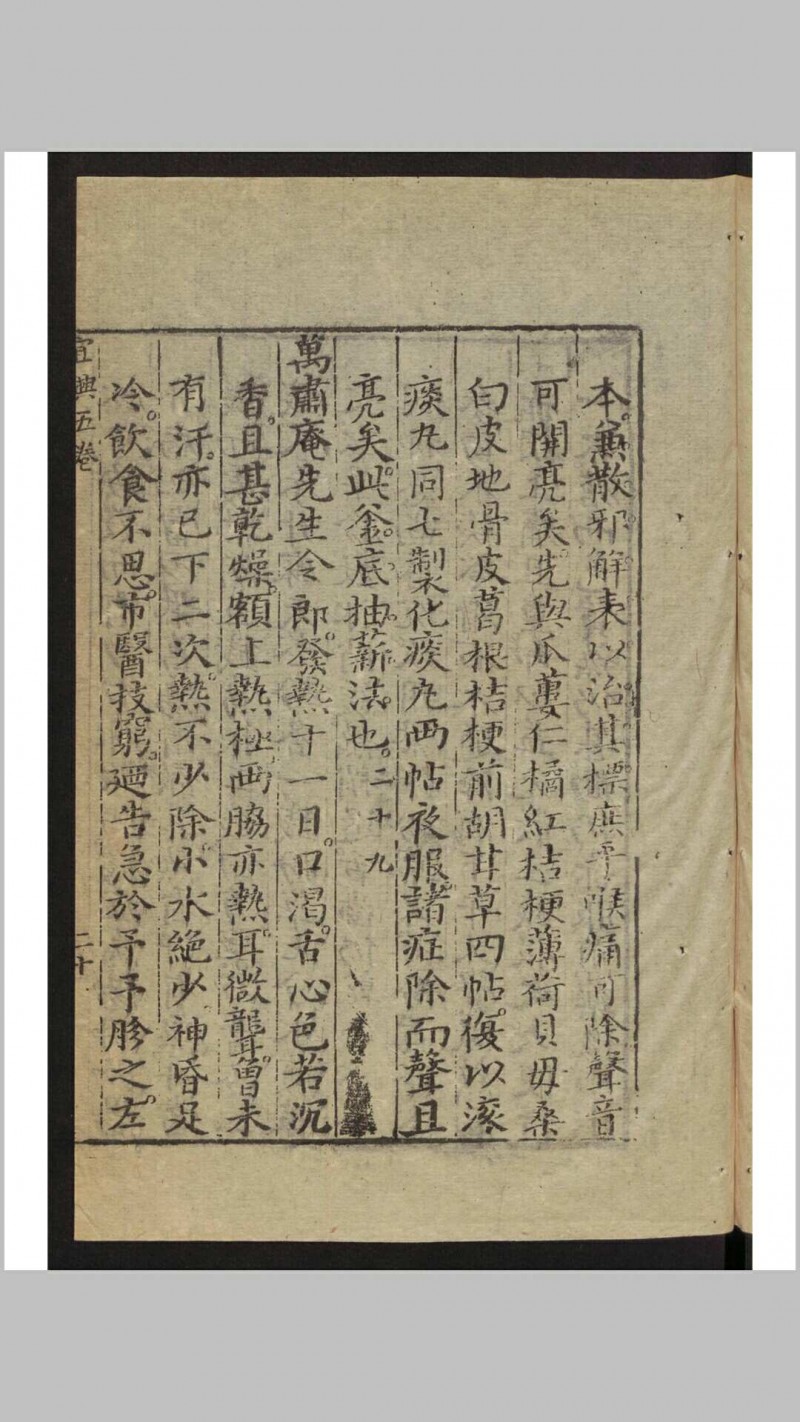 本。兼散邪解表以治其標。庶乎喉痛可除聲音
可開亮矣。先與瓜蔞仁橘紅桔梗薄荷貝毋桑
白皮地骨皮葛根桔梗前胡甘草四帖。復以滚
痰丸同七製化痰丸兩帖夜服。諸症除而聲且
亮矣。此。釜。底。抽。薪。法。也。二十九
萬肅庵先生令郎。發熱十一日。口渴。舌心色若沉
香。且甚乾燥。額上熱極兩脇亦熱。耳微聾。曾未
有汗。亦已下二次。熱不少除。小水絶少神昏足
冷。飲食不思。市醫技窮。廼告急於予予胗之。左。
宜興五卷
二十